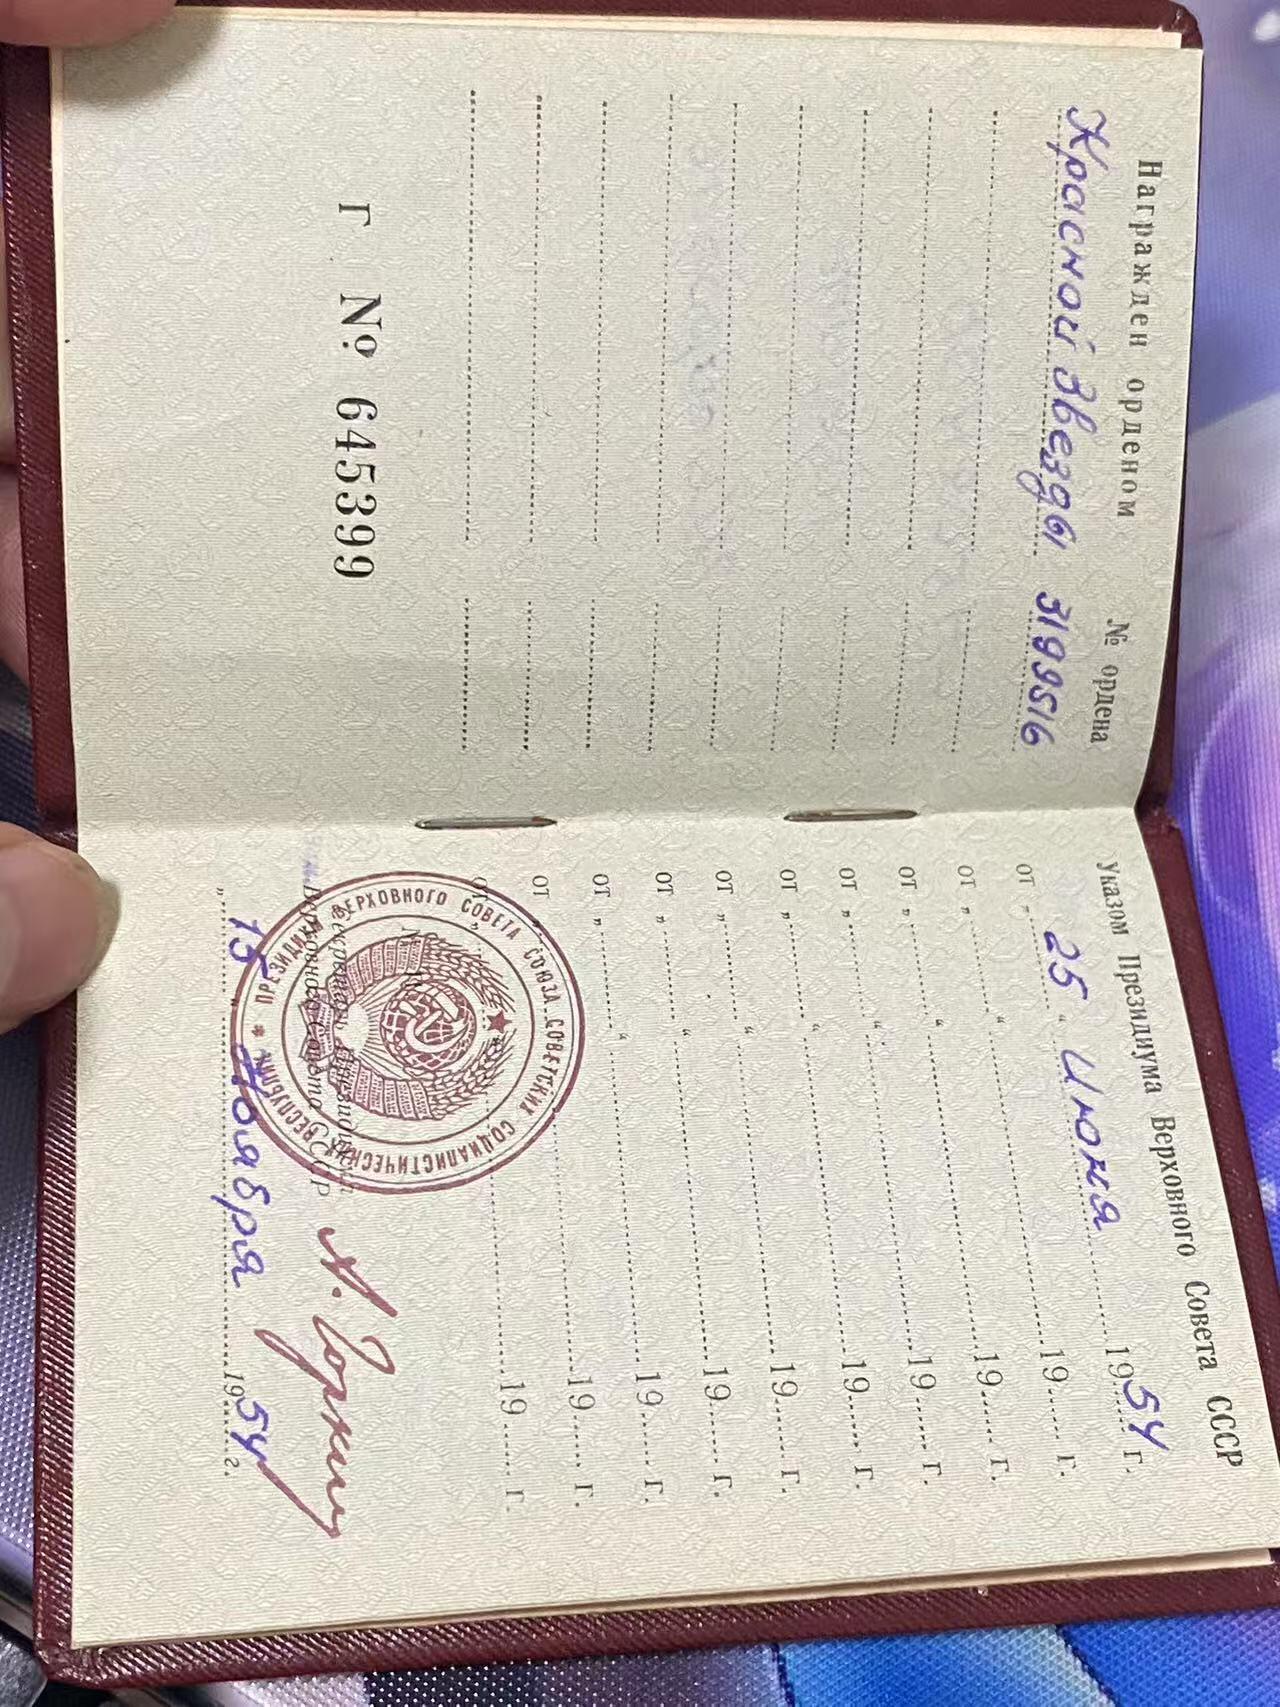 Награжден орденом № ордена
Красной Звезды 3199516
Г № 645399
Указом Президиума Верховного Совета СССР
от „ 25 “ Июня 1954 г.
от „ “ 19 г.
от „ “ 19 г.
от „ “ 19 г.
от „ “ 19 г.
от „ “ 19 г.
от „ “ 19 г.
от „ “ 19 г.
от „ 19 г.
от „ 19 г.
М. П.
Секретарь Президиума
Верховного Совета СССР А. Горкин
„ 15 “ Ноября 1954 г.
ПРЕЗИДИУМ ВЕРХОВНОГО СОВЕТА СОЮЗА СОВЕТСКИХ СОЦИАЛИСТИЧЕСКИХ РЕСПУБЛИК